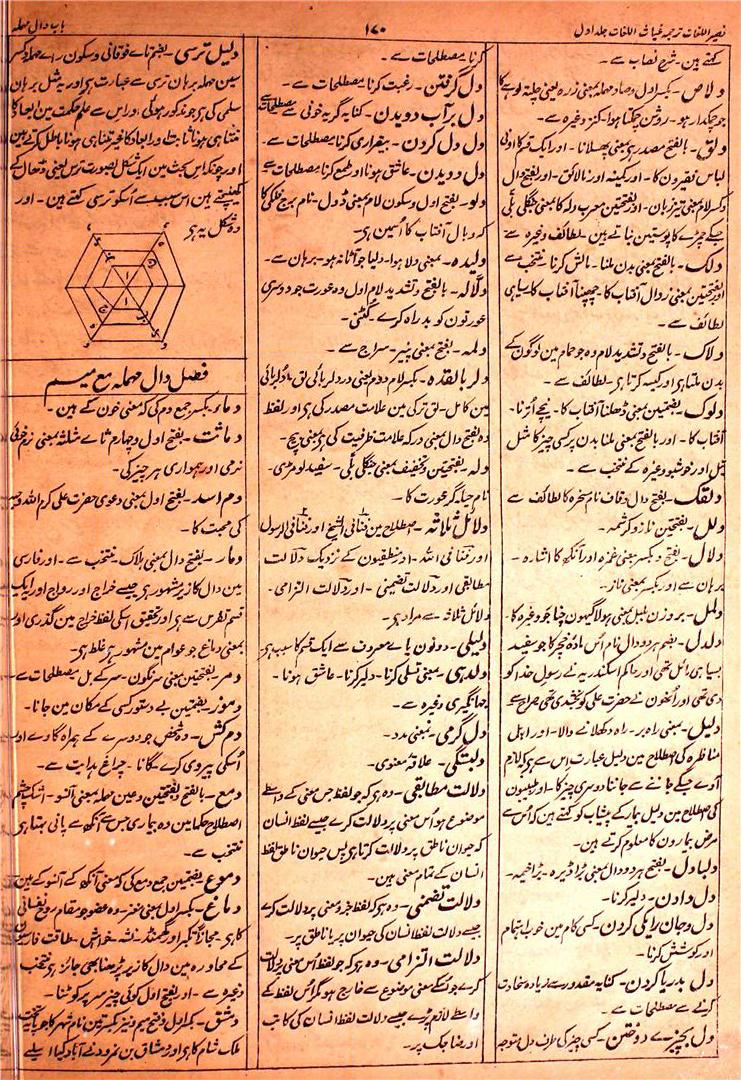 نصیر اللغات ترجمہ غیاث اللغات جلد اول
۱۷۰
باب دال مہملہ
کہتے ہین۔ شرح نصاب سے۔
دلاص۔ بکسر اول و صاد مہملہ بمعنی زرہ یعنی حلیتہ لوہے کا
جو چمکدار ہو۔ روشن چمکتا ہوا۔ کنز وغیرہ سے۔
دلق۔ بالفتح مصدر ہے بمعنی پھسلانا۔ اور ایک قسم کا اونی
لباس فقیرون کا۔ اور کمینہ اور نالائق۔ اور بفتح دال
وکسر لام بمعنی تیز زبان۔ اور بفتحتین معرب دلہ کا بمعنی جنگلی بلی
جسکے چمڑے کا پوستین بناتے ہین۔ لطائف وغیرہ سے
دلک۔ بالفتح بمعنی بدن ملنا۔ مالش کرنا۔ منتخب سے
اور بفتحتین بمعنی زوال آفتاب کا۔ چھپنا آفتاب کا سیاہی
لطائف سے۔
دلاک۔ بالفتح و تشدید لام وہ جو حمام مین لوگون کے
بدن ملتا ہی اور کیسہ کرتا ہی۔ لطائف سے۔
دلوک۔ بضمتین بمعنی ڈھلنا آفتاب کا۔ نیچے اُترنا۔
آفتاب کا۔ اور بالفتح بمعنی ملنا بدن پر کسی چیز کا مثل
تیل اور خوشبو وغیرہ کے منتخب سے۔
دلقک۔ بفتح دال و قاف نام مسخرہ کا لطائف سے
دلل۔ بفتحتین ناز و کرشمہ۔
دلال۔ بفتح و بکسر بمعنی غمزہ اور آنکھ کا اشارہ۔
برہان سے اور بکسر بمعنی ناز۔
دلمل۔ بروزن بلبل بمعنی ہولا گیہون چنا جو وغیرہ کا۔
دلدل۔ بضم ہر دو دال نام اُس مادہ خچر کا جو سفید
بسیاہی مائل تھی اور حاکم اسکندریہ نے رسول خدا کو
دی تھی اور اُنھون نے حضرت علی کو بخشدی تھی صراح سے
دلیل۔ بمعنی راہ بر۔ راہ دکھلانے والا۔ اور اہل
مناظرہ کی اصطلاح مین دلیل عبارت اس سے ہی کہ لازم
آوے جسکے جاننے سے جاننا دوسری چیز کا۔ اور طبیبون
کی اصطلاح مین دلیل بیمار کے پیشاب کو کہتے ہین کہ اُس سے
مرض بیمارون کا معلوم کرتے ہین۔
دلبادل۔ بفتح ہر دو دال بمعنی بڑا ڈیرہ۔ بڑا خیمہ۔
دل دادن۔ دلیر کرنا۔
دل و جان را یکی کردن۔ کسی کام مین خوب اہتمام
اور کوشش کرنا۔
دل بدریا کردن۔ کنایہ مقدور سے زیادہ سخاوت
کرنے سے مصطلحات سے۔
دل بچیزے دوختن۔ کسی چیز کی طرف دل متوجہ
کرنا مصطلحات سے۔
دل گرفتن۔ رغبت کرنا مصطلحات سے۔
دل بر آب دویدن۔ کنایہ گریہ خونی سے مصطلحات
دل دل کردن۔ بیقراری کرنا مصطلحات سے۔
دل دویدن۔ عاشق ہونا اور طمع کرنا مصطلحات سے
دلو۔ بفتح اول وسکون لام بمعنی ڈول۔ نام برج فلکی کا
کہ وبال آفتاب کا اُسمین ہی۔
دلیدہ۔ بمعنی دلا ہوا۔ دلیا جو آٹا نہ ہو۔ برہان سے۔
دلالہ۔ بالفتح و تشدید لام اول وہ عورت جو دوسری
عورتون کو بد راہ کرے۔ کٹنی۔
دلمہ۔ بفتح بمعنی پنیر۔ سراج سے۔
دلربالقدہ۔ بکسر لام دوم یعنی در دلربائی لق
مین کامل۔ لق ترکی مین علامت مصدر کی ہی اور لفظ
دہ بفتح دال بمعنی در کہ علامت ظرفیت کی ہی بمعنی بیچ۔
دلہ۔ بفتحتین و تخفیف بمعنی جنگلی بلی۔ سفید لومڑی۔
نام حیلہ گر عورت کا۔
دلائل ثلاثہ۔ اصطلاح مین فنا فی الشیخ اور فنا فی الرسول
اور فنا فی اللہ۔ اور منطقیون کے نزدیک دلالت
مطابقی اور دلالت تضمنی۔ اور دلالت التزامی۔
دلائل ثلثہ سے مراد ہی۔
دلیلی۔ دونون یاے معروف سے ایک قسم کا سیب ہی
دلدہی۔ بمعنی تسلی کرنا۔ دلیر کرنا۔ عاشق ہونا۔
جہانگیری وغیرہ سے۔
دل گرمی۔ بمعنی مدد۔
دلبستگی۔ علاقہ معنوی۔
دلالت مطابقی۔ وہ ہی کہ جو لفظ جس معنی کے واسطے
موضوع ہو اُس معنی پر دلالت کرے جیسے لفظ انسان
کہ حیوان ناطق پر دلالت کرتا ہی پس حیوان ناطق لفظ
انسان کے تمام معنی ہین۔
دلالت تضمنی۔ وہ ہی کہ لفظ جزو معنی پر دلالت کرے
جیسے دلالت لفظ انسان کی حیوان پر یا ناطق پر۔
دلالت التزامی۔ وہ ہی کہ جو لفظ اُس معنی پر دلالت
کرے جو اُسکے معنی موضوع سے خارج ہو مگر اُس لفظ کے
واسطے لازم پڑے جیسے دلالت لفظ انسان کی کاتب
اور ضاحک پر۔
دلیل ترسی۔ بضم تاے فوقانی وسکون راے مہملہ وکسر
سین مہملہ برہان ترسی سے عبارت ہی اور یہ مثل برہان
سلمی کی ہی جو مذکور ہوئی اور اس سے علم حکمت مین ابعاد کا
متناہی ہونا ثابت اور ابعاد کا غیر متناہی ہونا باطل کرتے ہین
اور چونکہ اس بحث مین ایک شکل بصورت ترس یعنی ڈھال کے
کھینچتے ہین اس سبب سے اُسکو ترسی کہتے ہین۔ اور
وہ شکل یہ ہی
فصل دال مہملہ مع میم
دماء۔ بکسر جمع دم کی کہ معنی خون کے ہین۔
دماثت۔ بفتح اول و چہارم ثاے مثلثہ بمعنی نرم خوئی
نرمی اور ہمواری ہر چیز کی۔
دم اسد۔ بفتح اول بمعنی دعوی حضرت علی کرم اللہ وجہہ
کی محبت کا۔
دمار۔ بفتح دال بمعنی ہلاک۔ منتخب سے۔ اور فارسی
مین دال کا زیر مشہور ہی جیسے خراج اور رواج اور ایک
قسم نظر اس سے ہی اور تحقیق اسکی لفظ خراج مین گذری اور
بمعنی دماغ جو عوام مین مشہور ہی غلط ہی۔
دمر۔ بفتحتین بمعنی سرنگون۔ سر کے بل۔ مصطلحات سے۔
دموز۔ بضمتین بے دستور کسی کے مکان مین جانا۔
دم کش۔ وہ شخص جو دوسرے کے ہمراہ گاوے اور
اُسکی پیروی کرے۔ گانا۔ چراغ ہدایت سے۔
دمع۔ بالفتح و بفتحتین و عین مہملہ بمعنی آنسو۔ اشک چشم
اصطلاح حکما مین وہ بیماری جس سے آنکھ سے پانی بہتا ہی
منتخب سے۔
دموع۔ بضمتین جمع دمع کی کہ معنی آنکھ کے آنسو کے ہین
دماغ۔ بکسر اول بمعنی مغز۔ وہ عضو جو مقام روح نفسانی
کا ہی۔ مجازاً تکبر اور گھمنڈ۔ نشہ۔ خواہش۔ طاقت فارسیون
کے محاورہ مین دال کا زبر پڑھنا بھی جائز ہی منتخب
وغیرہ سے۔ اور بفتح اول کوئی چیز سر پر کوٹنا۔
دمشق۔ بکسر اول و فتح میم و نیز بکسرتین نام شہر کا جو پایہ تخت
ملک شام کا ہی اور دمشاق بن نمرود نے آباد کیا اسلیے